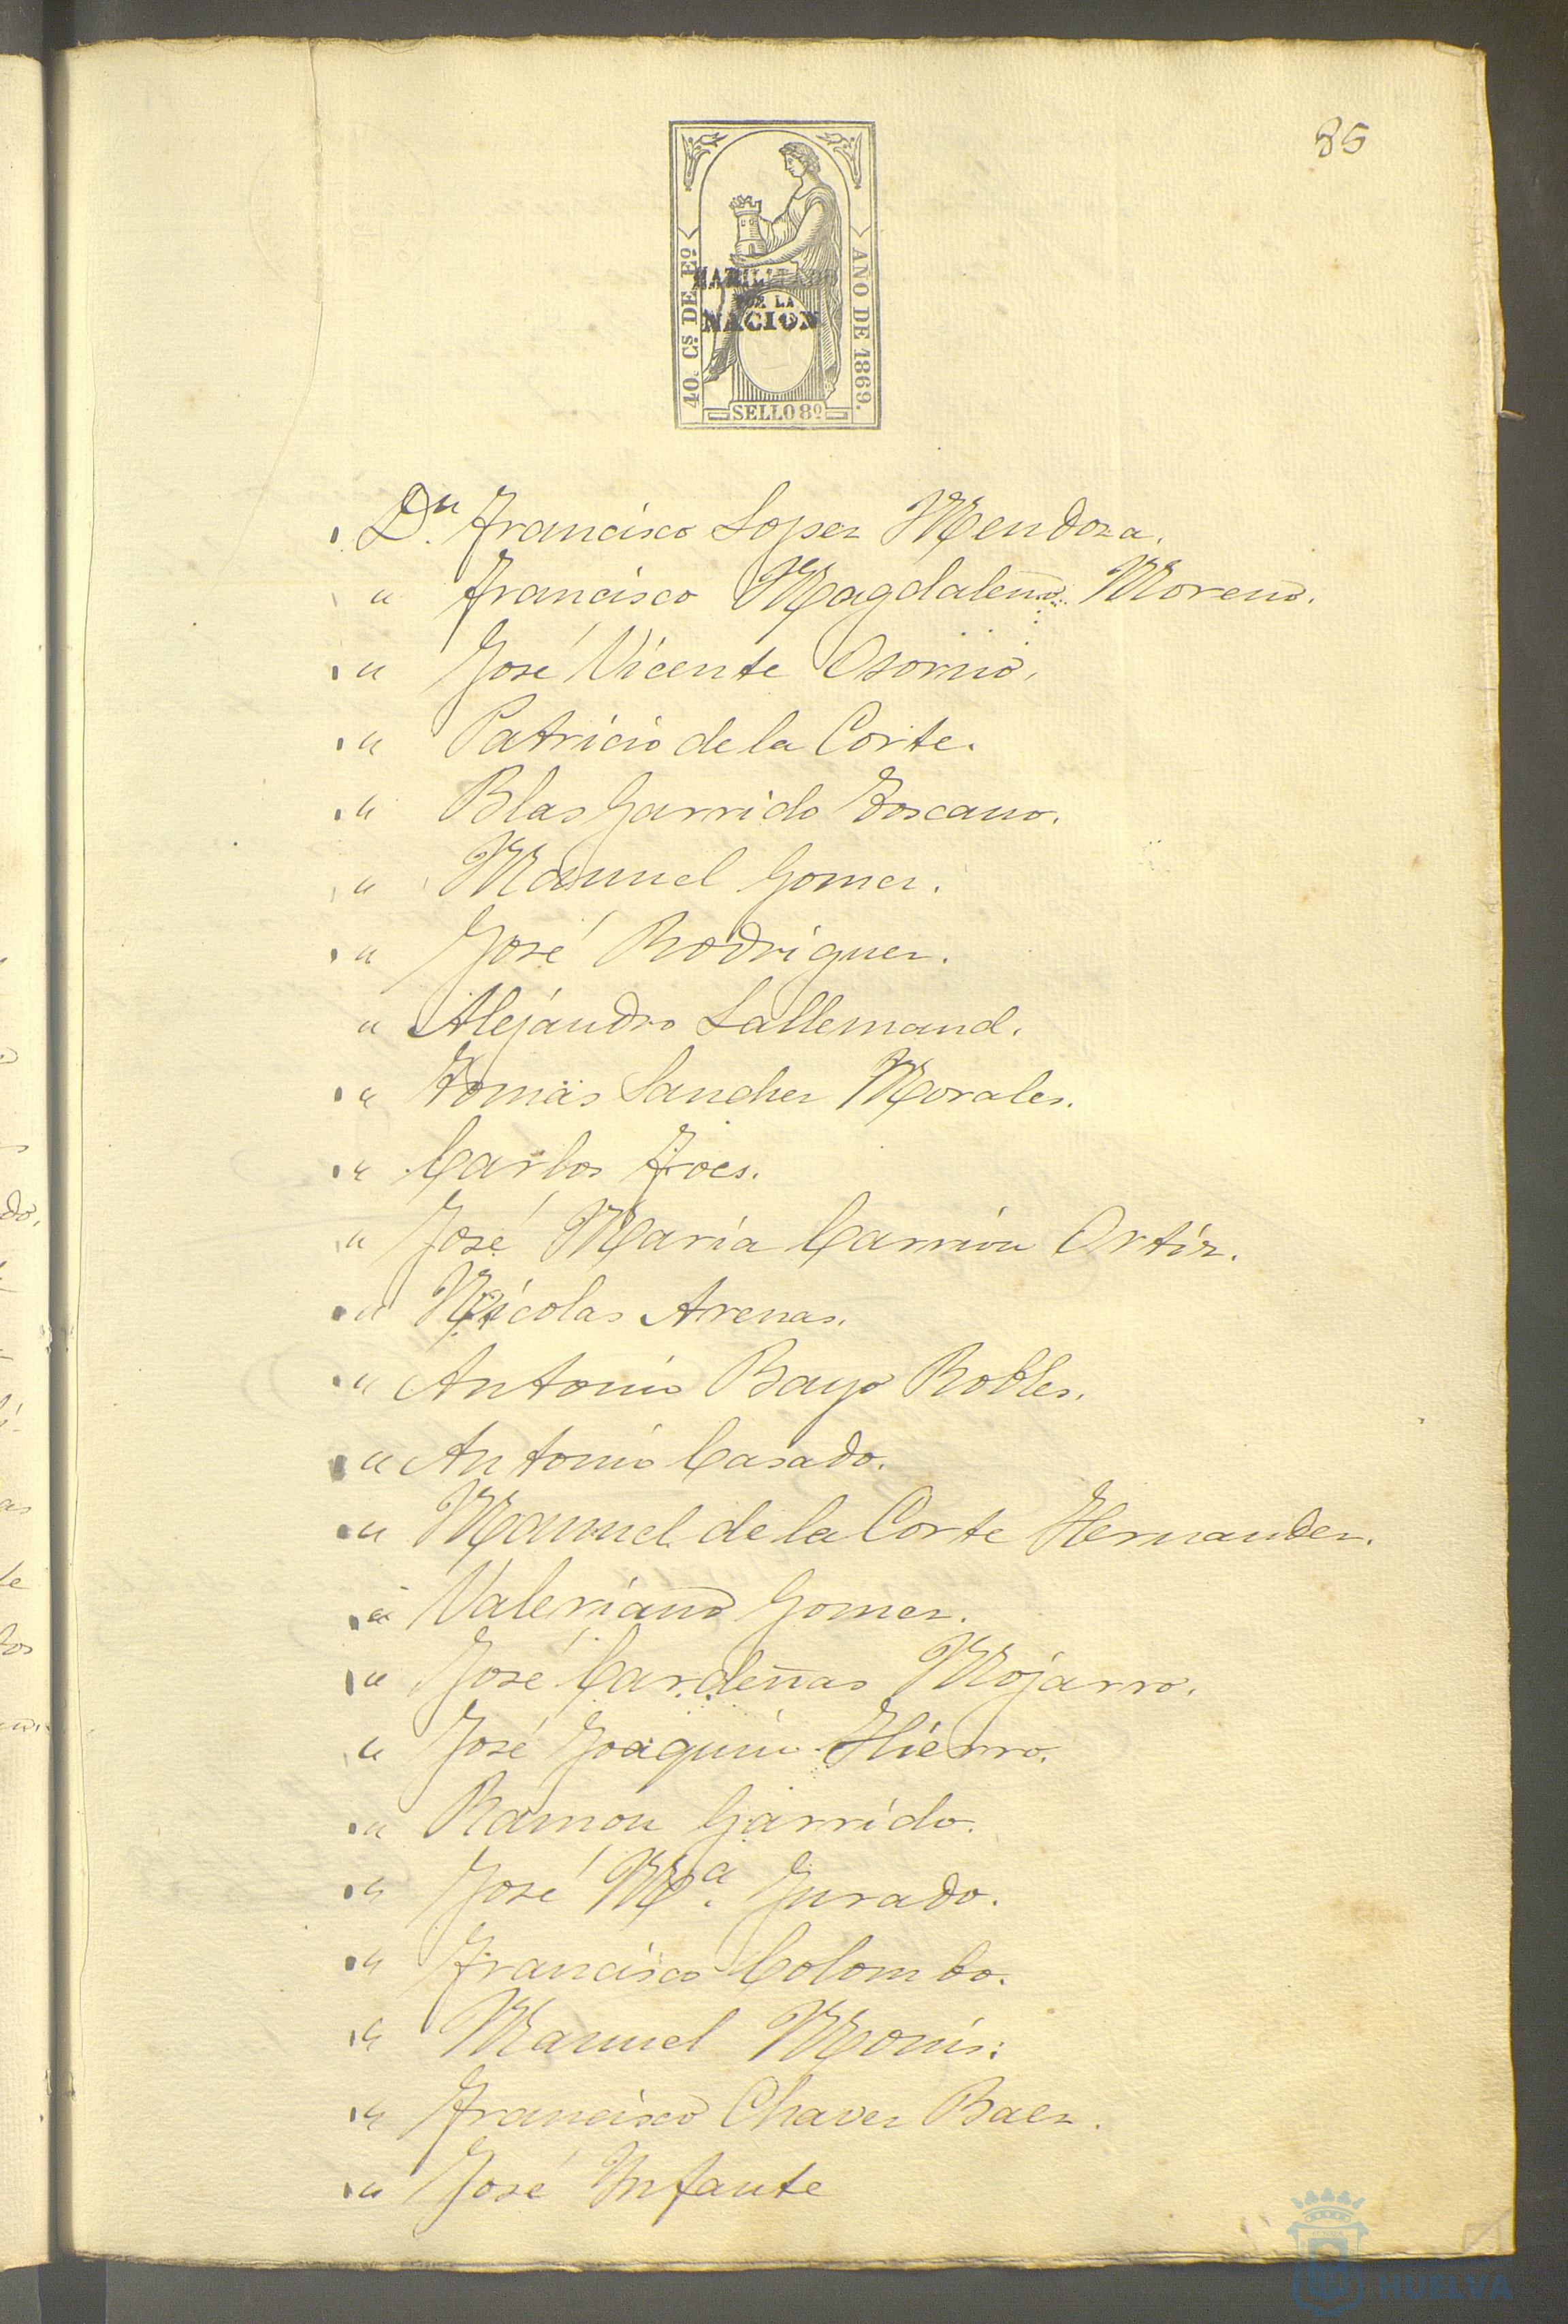 85
40. Cs. DE Eº.
AÑO DE 1869.
HABILITADO
POR LA
NACION
SELLO 8º
Dn. Francisco Lopez Mendoza.
" Francisco Magdaleno Moreno.
" José Vicente Osorno.
" Patricio de la Corte.
" Blas Garrido Toscano.
" Manuel Gomez.
" José Rodriguez.
" Alejandro Lallemand.
" Tomás Sanchez Morales.
" Carlos
" José María Carrión Ortíz.
" Nicolas Arenas.
" Antonio Bayo Robles.
" Antonio Casado.
" Manuel de la Corte Hernandez.
" Valeriano Gomez.
" José Cardeñas Mojarro.
" José Joaquin Hierro.
" Ramon Garrido.
" José Mª. Jurado.
" Francisco Colombo.
" Manuel Monis.
" Francisco Chavez Baez.
" José Infante
HUELVA